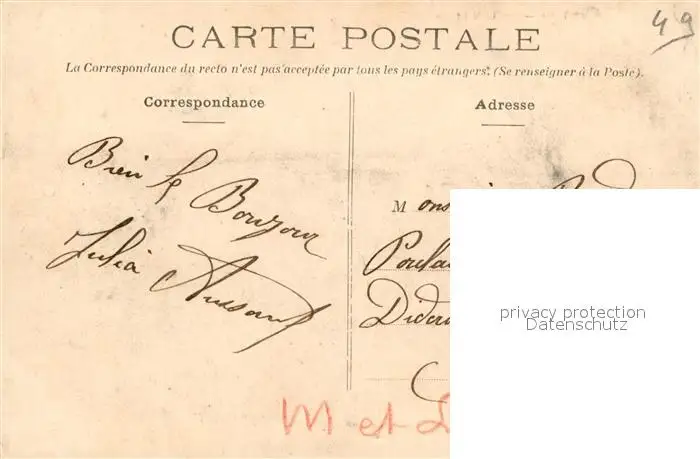 49
CARTE POSTALE
La Correspondance du recto n'est pas acceptée par tous les pays étrangers. (Se renseigner à la Poste).
Correspondance
Adresse
Bien le Bonjour
Julia
Mons
Didou
M et
privacy protection
Datenschutz